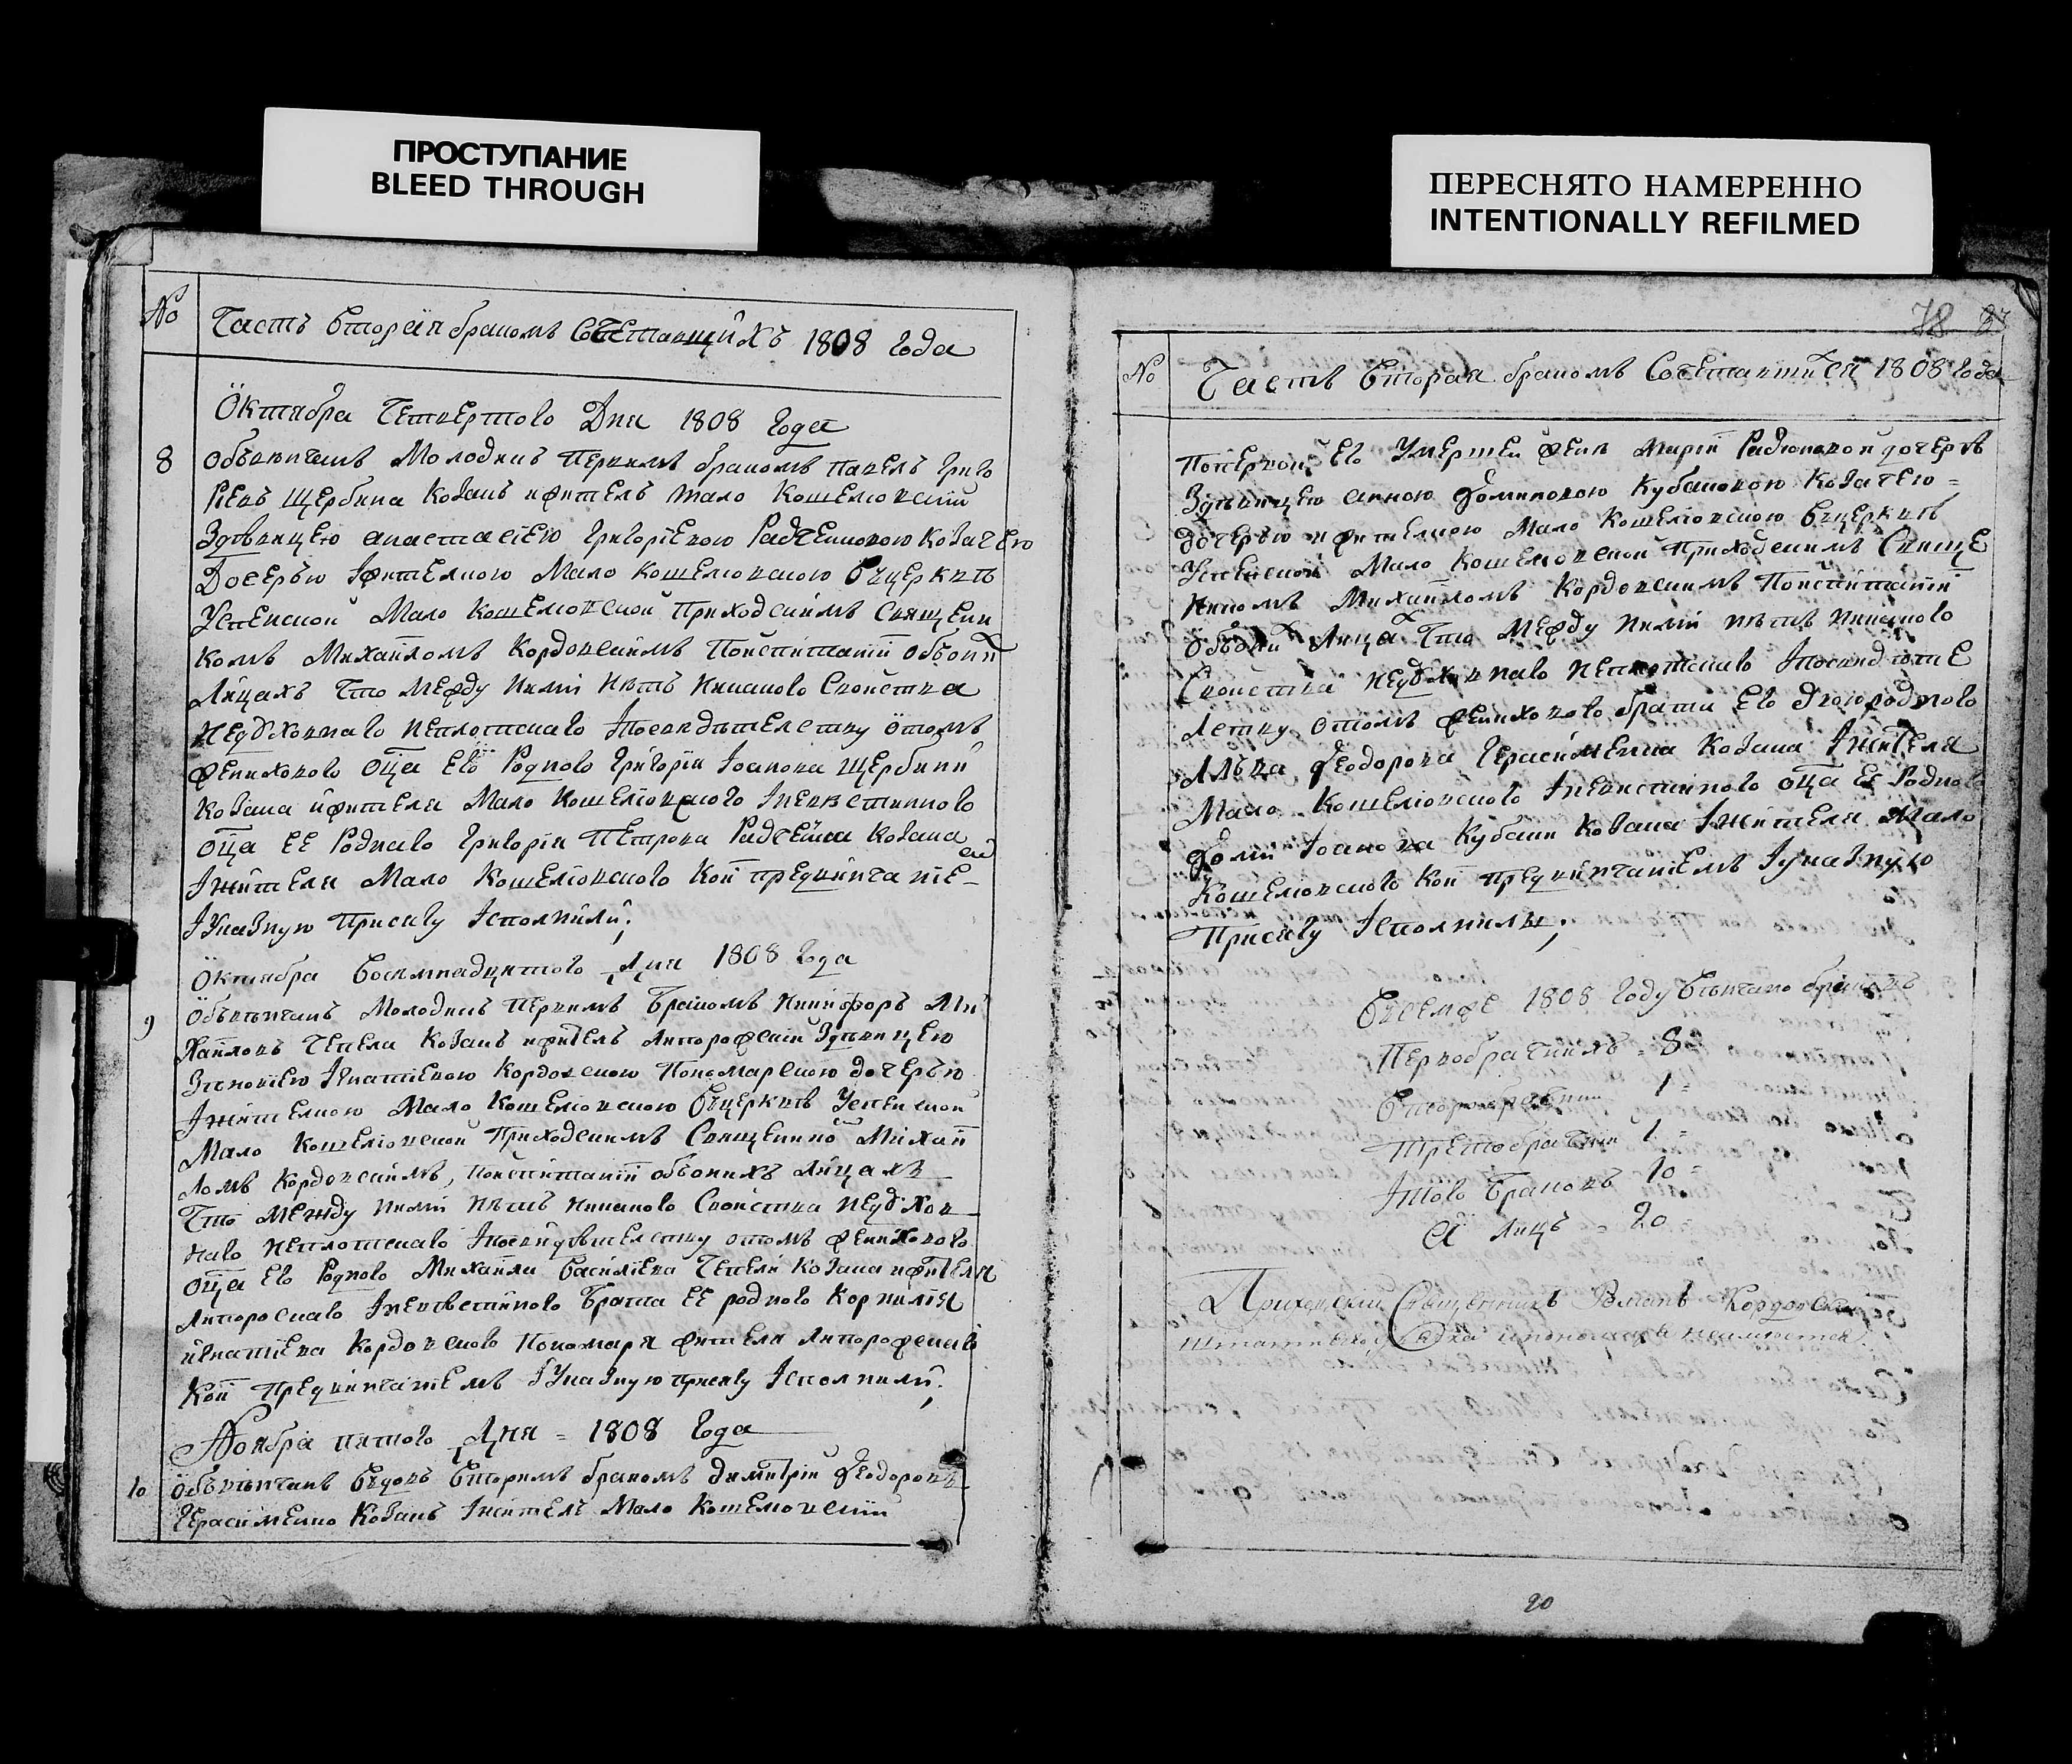 ПРОСТУПАНИЕ
BLEED THROUGH
ПЕРЕСНЯТО НАМЕРЕННО
INTENTIONALLY REFILMED
№
Часть вторая бракомъ сочетавшихъ 1808 года
Октября четвертого дня 1808 года
8
Обвенчанъ молодикъ первимъ бракомъ Павелъ Григо
риевъ Щербина козакъ и житель мало кошелювский
здевицею анастасиею Григориевою Радченковою козачею
дочерью и жителкою мало кошелювскою вцеркве
Успенской мало кошелювской приходскимъ священи
комъ Михаиломъ Кордовскимъ поиспитании обоих
лицахъ что между ними нетъ никакого свойства
недуховнаго неплотскаго и посвидетелству о томъ
женихового отца его родного Григория Иоанова Щербини
козака и жителя мало кошелювского и невестиного
отца ее роднаго Григория Петрова Радченка козака
и жителя мало кошелювского кои предвинчание_
и указную присягу исполнили;
Октября восемнадцятого дня 1808 года
9
Обвенчанъ молодикъ первимъ бракомъ Никифоръ Ми
хайловъ Чепела козакъ и житель липорожский здевицею
Зиновиею Игнатиевою Кордовскою пономарскою дочерью
и жителкою мало кошелювскою вцеркве Успенской
мало кошелювской приходскимъ священико Михаи
ломъ Кордовскимъ, поиспитании обоихъ лицахъ
что между ними нетъ никакого свойства недухов
наго неплотскаго и посвидетелству о томъ женихового
отца его родного Михайла Василиева Чепели козака и жителя
и невестиного брата ее родного Корнилия
игнатиева Кордовского пономаря жителя
кои предвинчаниемъ и указную присягу исполнили;
Ноября пятого дня = 1808 года
10
Обвенчанъ вдовъ вторимъ бракомъ Димитрий Феодоровъ
Герасименко козакъ и житель мало кошелювский
78
№
Часть вторая бракомъ сочетавшихся 1808 года
попервой его умершей жене Марии Радионовой дочере
здевицею анною Фоминовою Кубановою козачею =
дочерью и жителкою мало кошелювскою вцеркве
Успенской мало кошелювской приходскимъ свяще
никомъ Михаиломъ Кордовскимъ поиспитании
обоих лица что между ними нетъ никакого
свойства недуховнаго неплотскаго и посвидете
лству о томъ женихового брата его двоюродного
Феодорова Герасименка козака и жителя
мало кошелювского и невестиного отца ее родного
Фоми Иоанова Кубани козака и жителя мало
кошелювского кои предвинчаниемъ и указную
присягу исполнили;
Всемже 1808 году венчано браковъ
Первобрачнихъ = 8
Второбрачни 1 =
Третобрачни 1 =
Итого браковъ 10 =
а лицъ = 20 =
Приходский священникъ Романъ Кордовский
20